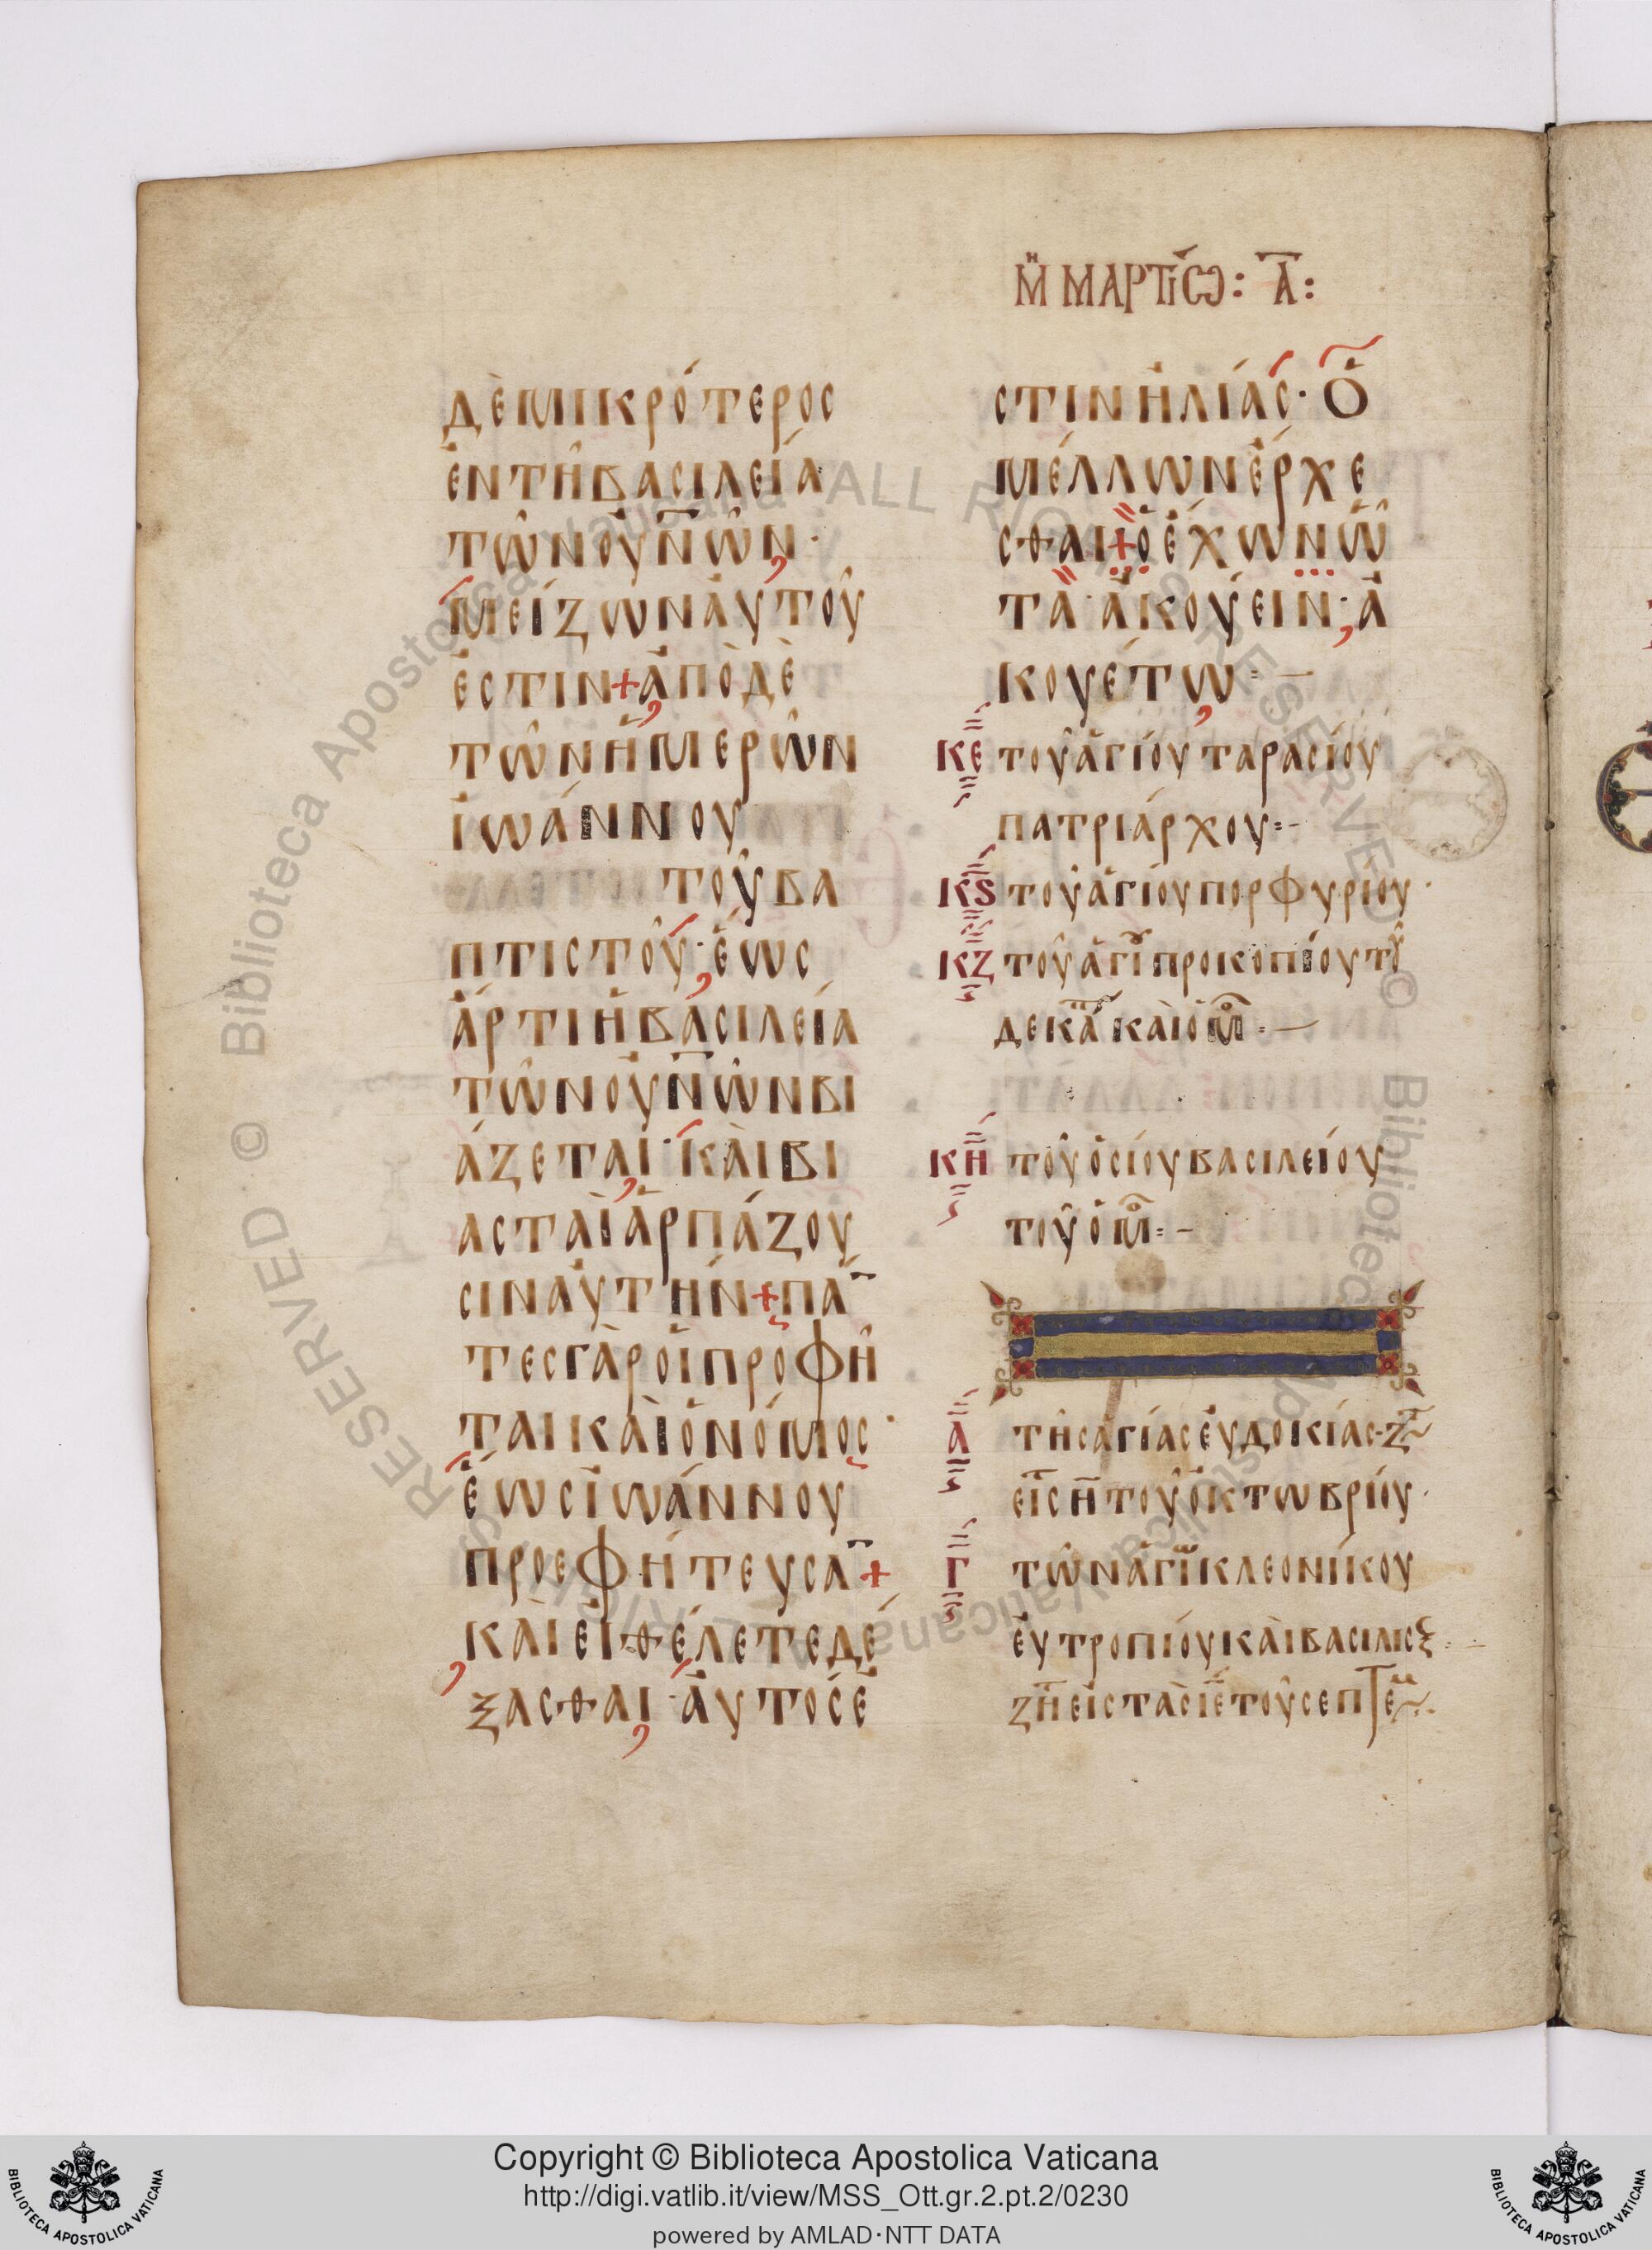 Μη ΜΑΡΤΊΩ: Α̅:
δὲ μικρότερος
ἐν τῆ βασιλεία
τῶν οὐν̅ῶν·
μείζων αὐτοῦ
ἐστιν + ἀπὸ δὲ
τῶν ἡμερῶν
ἰωάννου
τοῦ βα
πτιστοῦ· ἕως
ἄρτι ἡ βασιλεία
τῶν οὐν̅ῶν βι
άζεται· καὶ βι
ασταὶ ἁρπάζου
σιν αὐτήν + πά̅
τες γὰρ οἱ προφῆ
ται καὶ ὁ νόμος·
ἕως ἰωάννου
προεφήτευσα̅ +
καὶ εἰ θέλετε δέ
ξασθαι· αὐτός ἐ
στιν ἠλίας· ὁ
μέλλων ἔρχε
σθαι + ὁ ἔχων ὦ
τα· ἀκούειν· ἀ
κουέτω :—
ΚΕ τοῦ ἁγίου ταρασίου
πατριάρχου :-
Κς τοῦ ἁγίου πορφυρίου·
ΚΖ τοῦ ἁγι προκοπίου τοῦ
δεκα καὶ ὁμο :—
ΚΗ τοῦ ὁσίου βασιλείου
τοῦ ὁμο :-
Α τῆς ἁγίας εὐδοκίας· ζτ
εἰς η̅ τοῦ ὀκτωβρίου·
Γ τῶν ἁγι κλεονίκου
εὐτροπίου καὶ βασιλισξ :-
ζη εἰς τὰς ιε τοῦ σεπτεμ
Copyright © Biblioteca Apostolica Vaticana
http://digi.vatlib.it/view/MSS_Ott.gr.2.pt.2/0230
powered by AMLAD·NTT DATA
BIBLIOTECA APOSTOLICA VATICANA
BIBLIOTECA APOSTOLICA VATICANA